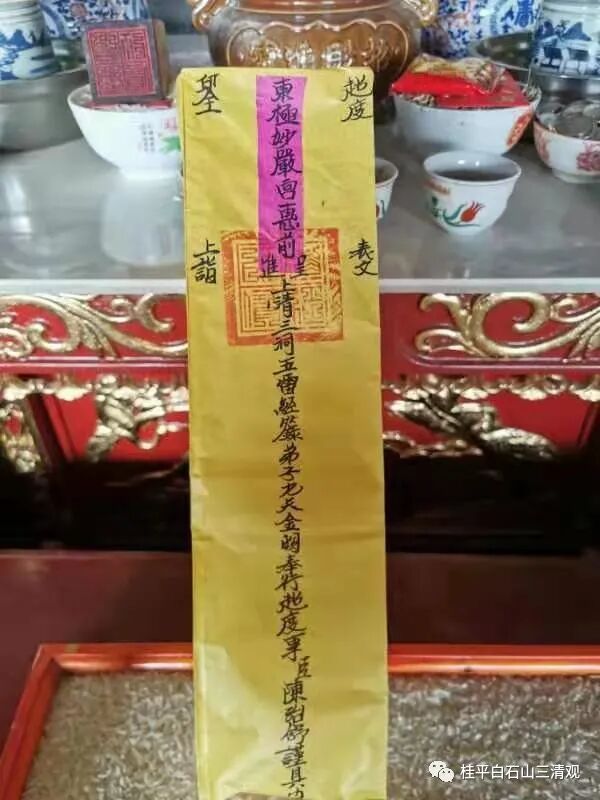 超度 表文
東極妙嚴宮惠前
呈進
上清三洞五雷經籙弟子九天金明奉行超度事臣陳治謹具
上詣
桂平白石山三清观